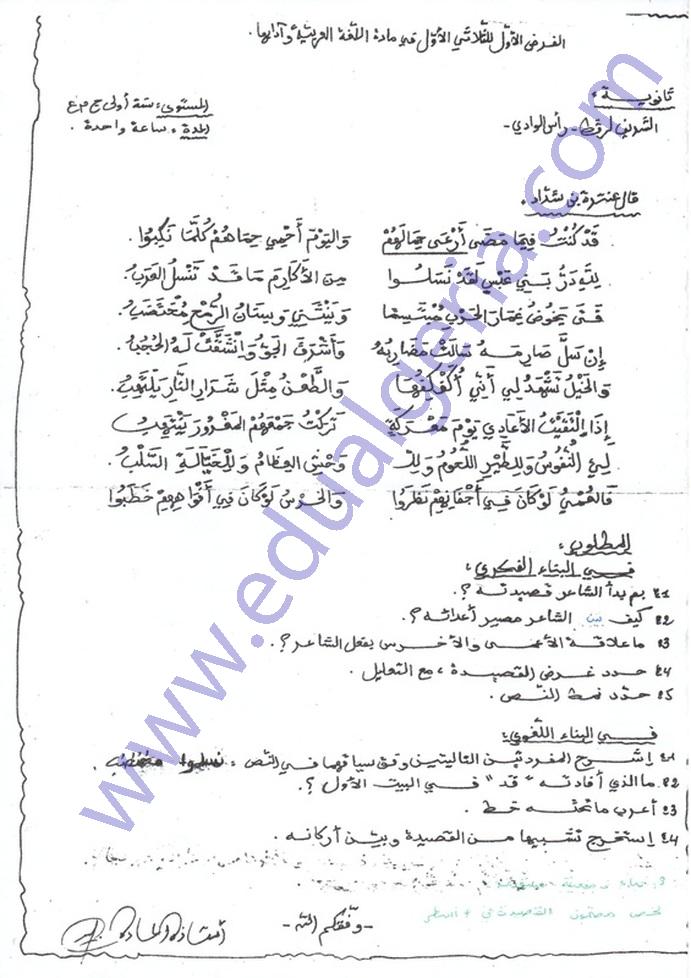 الفرض الأوّل للثلاثي الأوّل في مادة اللغة العربية و آدابها.
ثانوية :
المستوى : سنة أولى ج م ع
الشريف لرقط - رأس الوادي -
المدة : ساعة واحدة .
قال عنترة بن شدّاد :
قَدْ كُنْتُ فِيمَا مَضَى أَرْعَى جِمَالَهُمْ وَاليَوْمَ أَحْمِي حِمَاهُمْ كُلَّمَا نُكِبُوا.
لِلّهِ دَرُّ بَنِي عَبْسٍ لَقَدْ نَسَلُوا مِنَ الأَكَارِمِ مَا قَدْ تَنْسُلُ العَرَبُ.
فَتًى يَخُوضُ غِمَارَ الحَرْبِ مُبْتَسِمًا وَيَنْثَنِي وَسِنَانُ الرُّمْحِ مُخْتَضَبُ.
إِنْ سَلَّ صَارِمَهُ سَالَتْ مَضَارِبُهُ وَأَشْرَقَ الجَوُّ وَانْشَقَّتْ لَهُ الحُجُبُ.
وَالخَيْلُ تَشْهَدُ لِي أَنِّي أُكَفْكِفُهَا وَالطَّعْنُ مِثْلُ شَرَارِ النَّارِ يَلْتَهِبُ.
إِذَا الْتَقَيْتُ الأَعَادِي يَوْمَ مَعْرَكَةٍ تَرَكْتُ جَمْعَهُمُ المَغْرُورَ يَنْتَهِبُ
لِيَ النُّفُوسُ وَلِلطَّيْرِ اللُّحُومُ وَلِلْ وَحْشِ العِظَامُ وَلِلْخَيَّالَةِ السَّلَبُ.
فَالعُمْيُ لَوْ كَانَ فِي أَجْفَانِهِمْ نَظَرُوا وَالخُرْسُ لَوْ كَانَ فِي أَفْوَاهِهِمْ خَطَبُوا
المطلوب :
فـي البناء الفكري :
1) بم بدأ الشاعر قصيدته ؟.
2) كيف بين الشاعر مصير أعدائه ؟.
3) ما علاقة الأعمى والأخرس بفعل الشاعر ؟.
4) حدد غرض القصيدة ، مع التعليل .
5) حدّد نمط النّص .
فـي البناء اللّغوي :
1) إشرح المفردتين التاليتين وفق سياقهما في النّص : نسلوا
2) ما الذي أفادته " قد " في البيت الأول ؟.
3) أعرب ما تحته خط .
4) إستخرج تشبيها من القصيدة وبيّن أركانه .
لخص مضمون القصيدة في
- وفّقكم الله -
أستاذة المادة
www.edualgeria.com